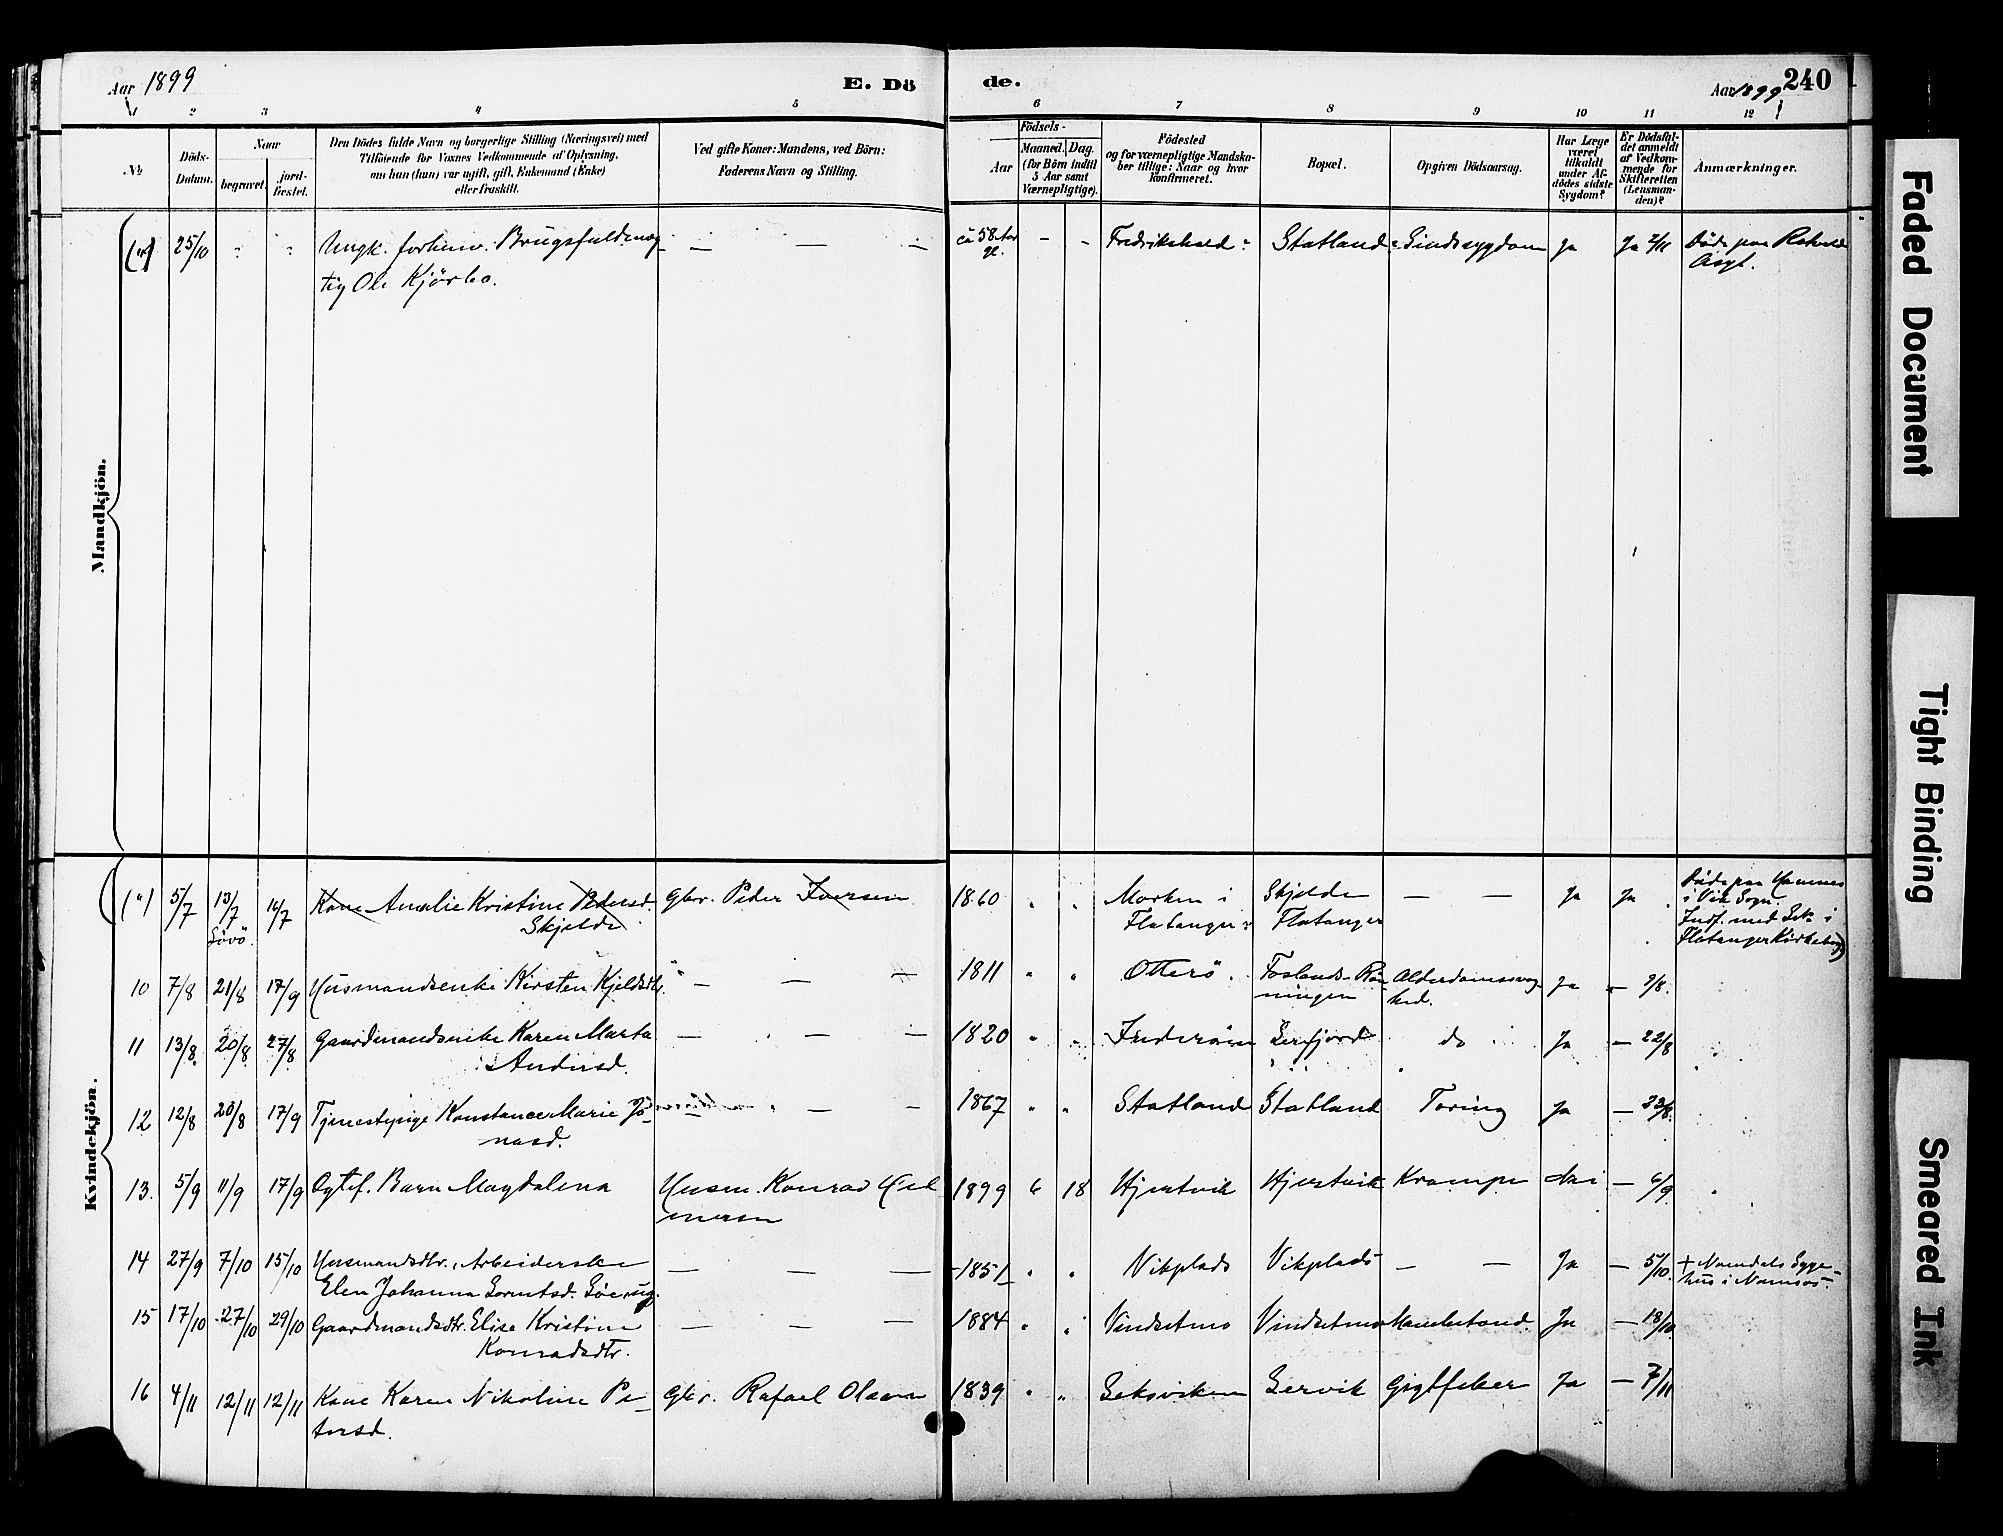 Aar 1899
E. Dö
de.
Aar 1899
240
1 2 3 4 5 6 7 8 9 10 11 12
No
Döds-
Datum.
Naar
begravet.
jord-
fæstet.
Den Dödes fulde Navn og borgerlige Stilling (Næringsvei) med
Tilföiende for Voxnes Vedkommende af Oplysning,
om han (hun) var ugift, gift, Enkemand (Enke)
eller fraskilt.
Ved gifte Koner: Mandens, ved Börn:
Faderens Navn og Stilling.
Födsels-
Aar
Maaned. Dag.
(for Börn indtil
5 Aar samt
Værnepligtige).
Födested
og for værnepligtige Mandska-
ber tillige: Naar og hvor
konfirmeret.
Bopæl.
Opgiven Dödsaarsag.
Har Læge
været
tilkaldt
under Af-
dödes sidste
Sygdom?
Er Dödsfal-
det anmeldt
af Vedkom-
mende for
Skifteretten
(Lensman-
den)?
Anmærkninger.
Mandkjön.
(") 25/10 Ungk. forhenv. Brugsfuldmæg- — — — ca 58 Aar - - Fredrikshald Statland Sindssygdom Ja Ja 2/11 Døde paa Rotvold
tig Ole Kjørbo. gl. Asyl.
Kvindekjön.
(") 5/7 13/7 16/7 Kone Amalie Kristine Pedersd. Gbr. Peder Iversen 1860 " " Morken i Skjelde — — Ja Ja Døde paa Hammer
Skjelde Flatanger Flatanger i Vik Sogn.
Indf. med No i
Flatanger Kirkebog)
10 7/8 21/8 17/9 Husmandsenke Kirsten Kjeldsdtr. — — — 1811 " " Otterö Foslands-Røn- Alderdomssvag- Ja — 9/8.
ningen hed.
11 13/8 20/8 27/8 Gaardmandsenke Karen Marta — — — 1820 " " do Ja — 22/8
Andersd.
12 12/8 20/8 17/9 Tjenestepige Konstance Marie Jo- — — — 1867 " " Statland Statland Tæring Ja — 23/8.
nasd.
13. 5/9 11/9 17/9 Ægtef. Barn Magdalena Husm. Konrad Hil 1899 6 18 Hjertvik Hjertvik Krampe Nei — 6/9.
mersen
14 27/9 7/10 15/10 Husmandsdtr., Arbeiderske — — — 1851 " " Vikplads Vikplads — — Ja — 5/10. + Namdals Syge-
Elen Johanna hus i Namsos.
15 17/10 27/10 29/10 Gaardmandsdtr. Elise Kristine — — — 1884 " " Vindsetmo Vindsetmo Ja — 18/10
Konradsdtr.
16 4/11 12/11 12/11 Kone Karen Nikoline Pe- Gbr. Rafael Olsen 1839 " " Leksviken Servik Gigtfeber Ja — 7/11
tersd.
Faded Document
Tight Binding
Smeared Ink